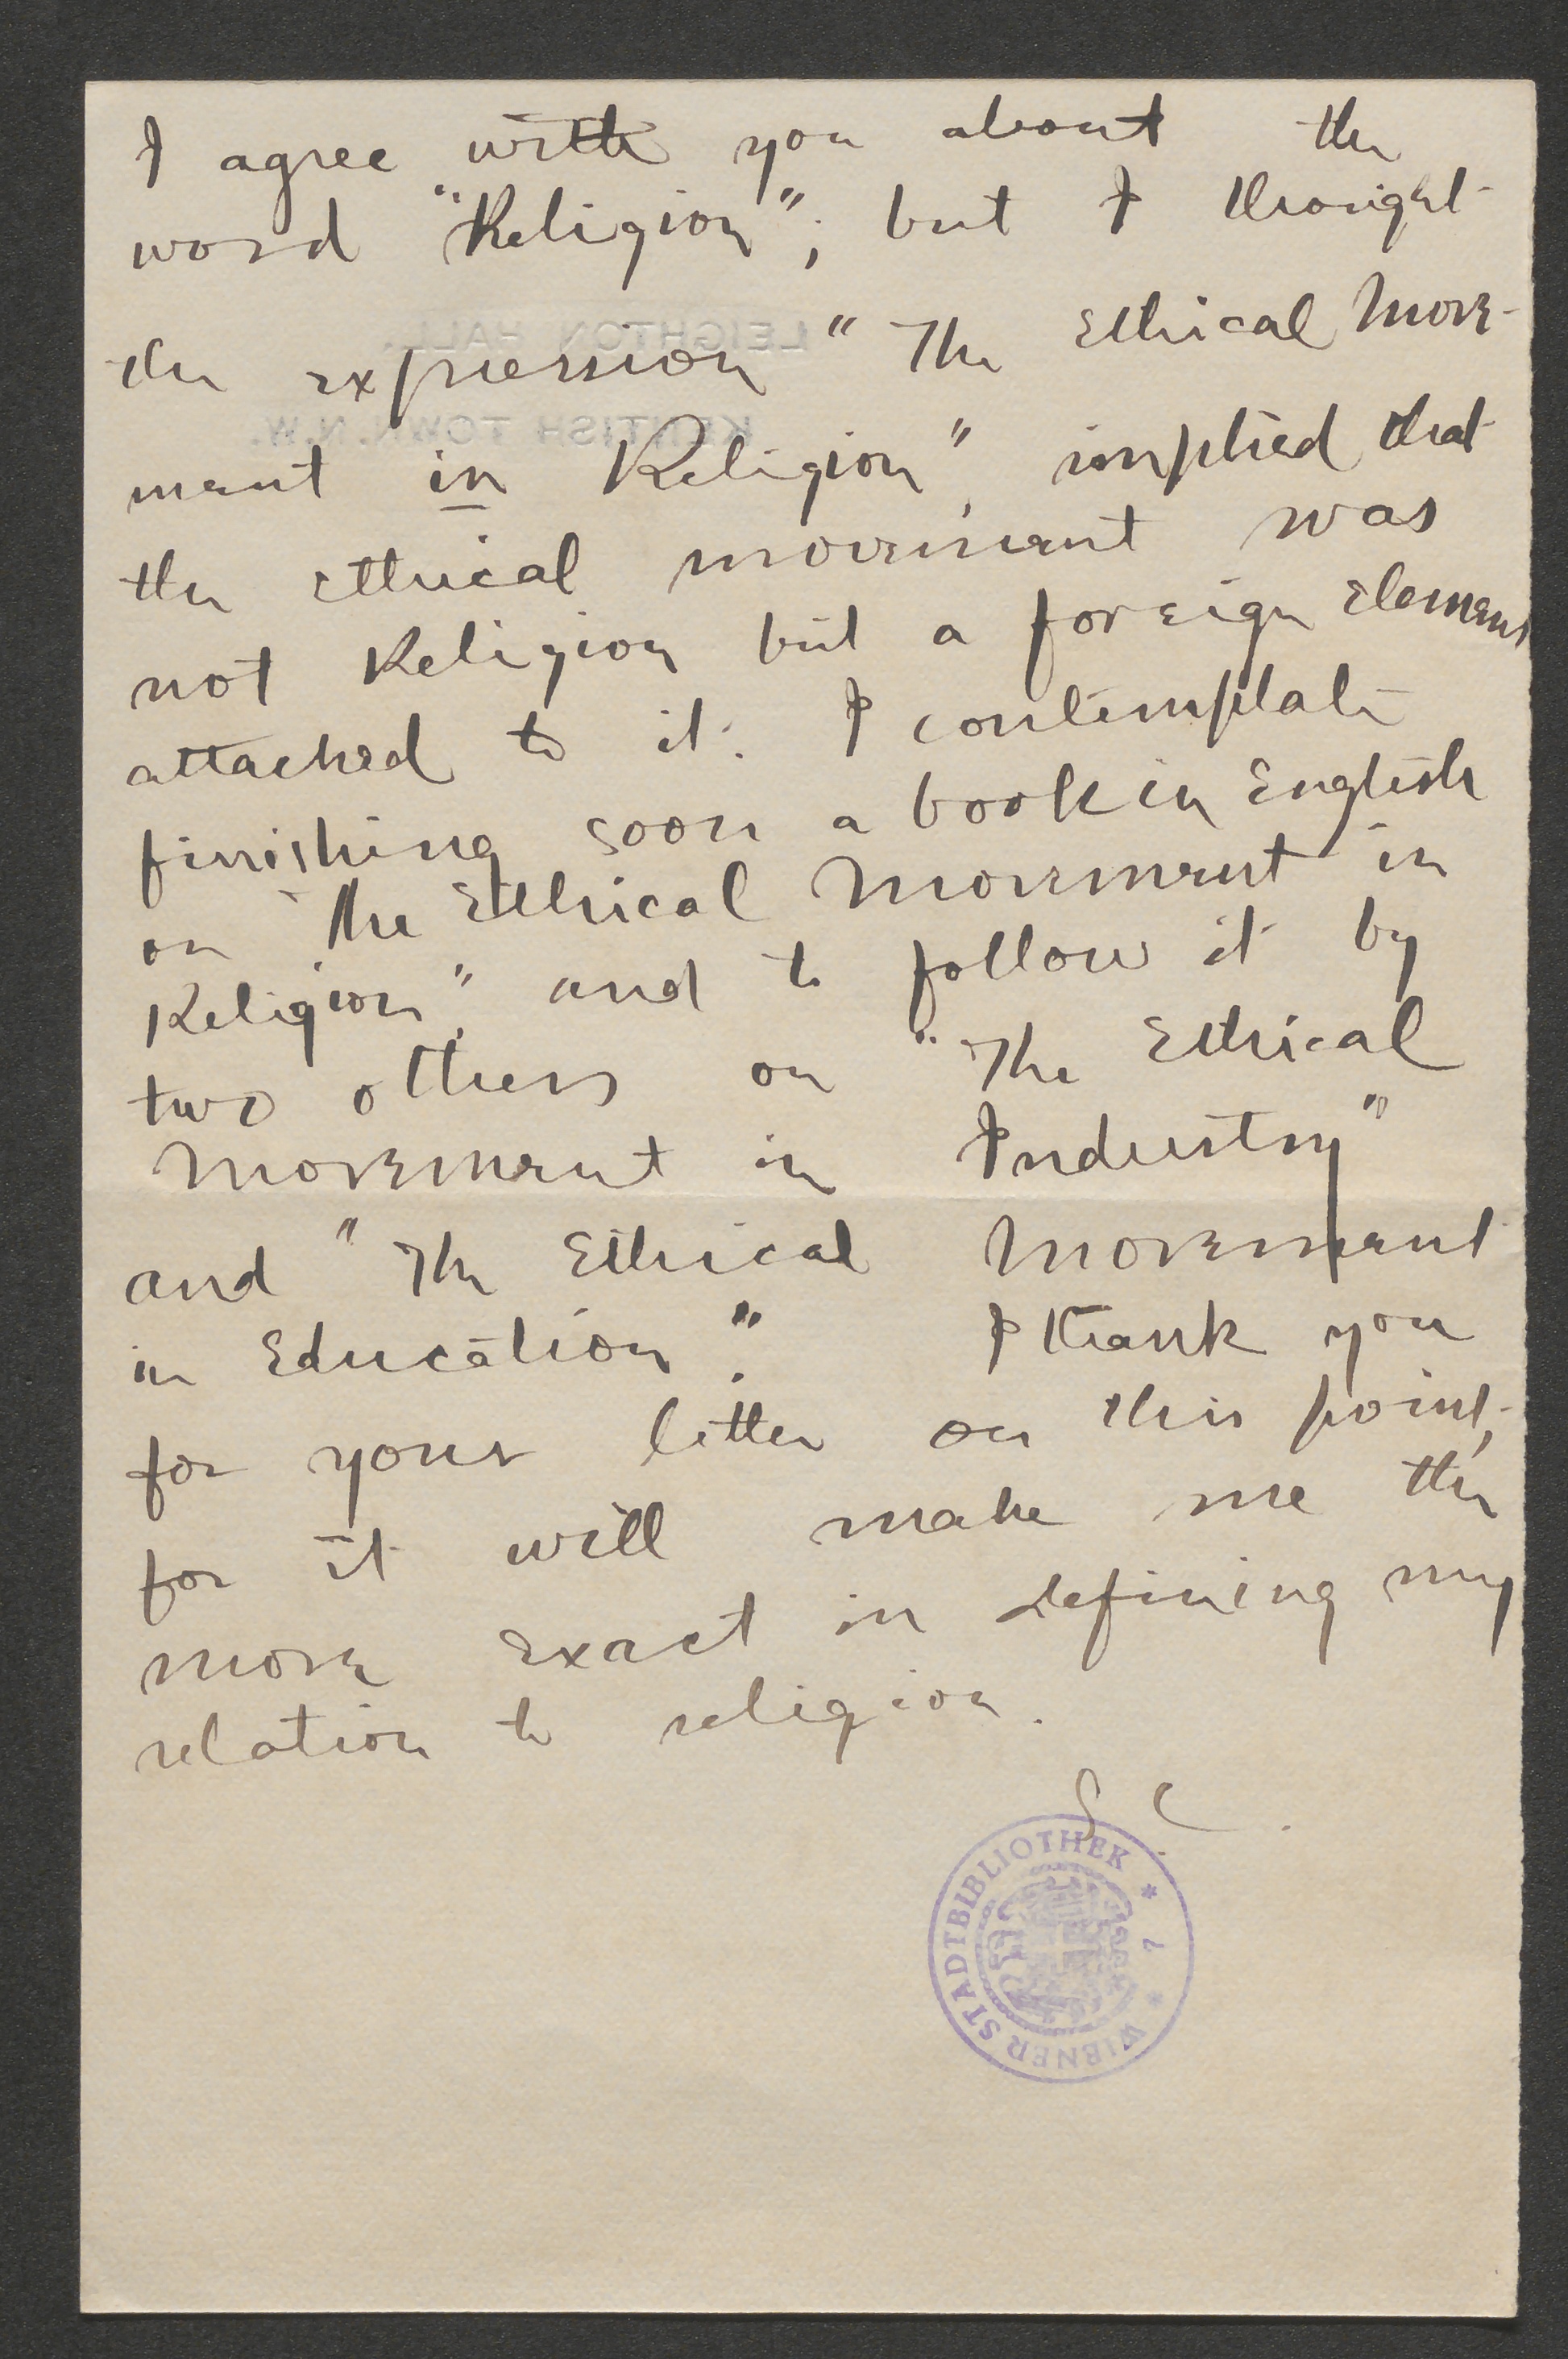 I agree with you about the
word "Religion"; but I thought
the expression "The Ethical Move-
ment in Religion", implied that
the ethical movement was
not Religion but a foreign element
attached to it. I contemplate
finishing soon a book in English
on "The Ethical Movement in
Religion", and to follow it by
two others on "The Ethical
Movement in Industry"
and "The Ethical Movement
in Education". I thank you
for your letter on this point,
for it will make me the
more exact in defining my
relation to religion.
S. C.
LEIGHTON HALL,
KENTISH TOWN. N.W.
WIENER STADTBIBLIOTHEK * 7 *